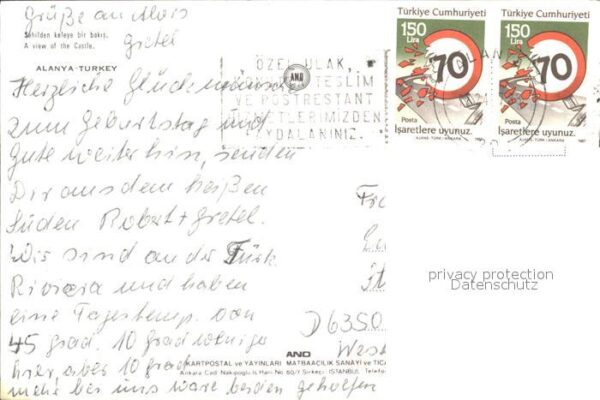 Grüße an Alois
Gretel
Sahilden kaleye bir bakış.
A view of the Castle.
ALANYA-TURKEY
Herzliche Glückwünsche
zum Geburtstag und
Gute weiterhin, senden
Dir aus dem heißen
Süden Robert + Gretel.
Wir sind an der Türk
Riviera und haben
eine Tagestemp. von
45 grad. 10 grad weniger
hier aber 10 grad
mehr bei uns wäre beiden geholfen
ÖZEL ULAK,
TESLİM
VE POSTRESTANT
YDALANINIZ.
Türkiye Cumhuriyeti
150
Lira
70
Posta
İşaretlere uyunuz.
AJANS-TÜRK/ANKARA 1987
Türkiye Cumhuriyeti
150
Lira
70
Posta
İşaretlere uyunuz.
AJANS-TÜRK/ANKARA 1987
D6350
West
privacy protection
Datenschutz
AND
KARTPOSTAL ve YAYINLARI MATBAACILIK SANAYİ ve TİC
Ankara Cad. Nakipoğlu İş Hanı No 60/7 Sirkeci İSTANBUL Telefo